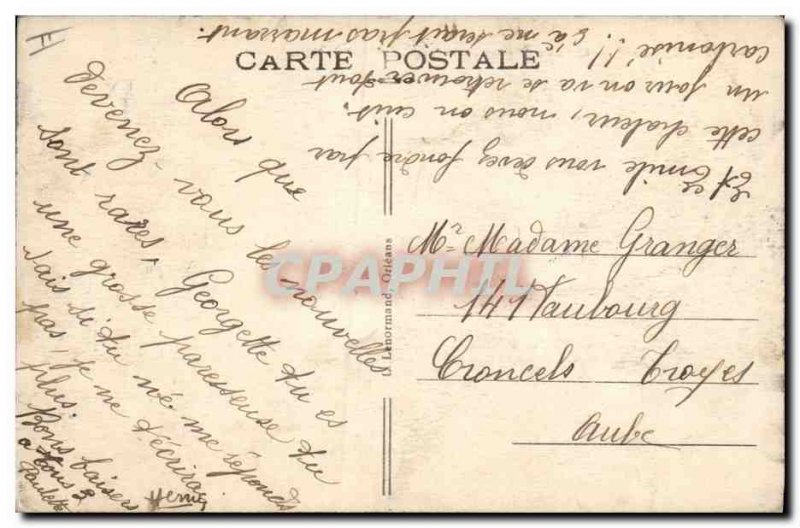 CARTE POSTALE
Alors que
devenez-vous les nouvelles
sont rares, Georgette tu es
une grosse paresseuse tu
sais si tu ne me réponds
pas, je ne t'écrirai
plus.
Bons baisers
à tous 2
Paulette
Et Emile vous devez fondre par
cette chaleur, nous on cuit.
un jour on va se retrouver tout
carbonisé!! ça me serait pas marrant.
Mr Madame Granger
14 Faubourg
Croncels Troyes
Aube
Lenormand, Orléans
CPAPHIL